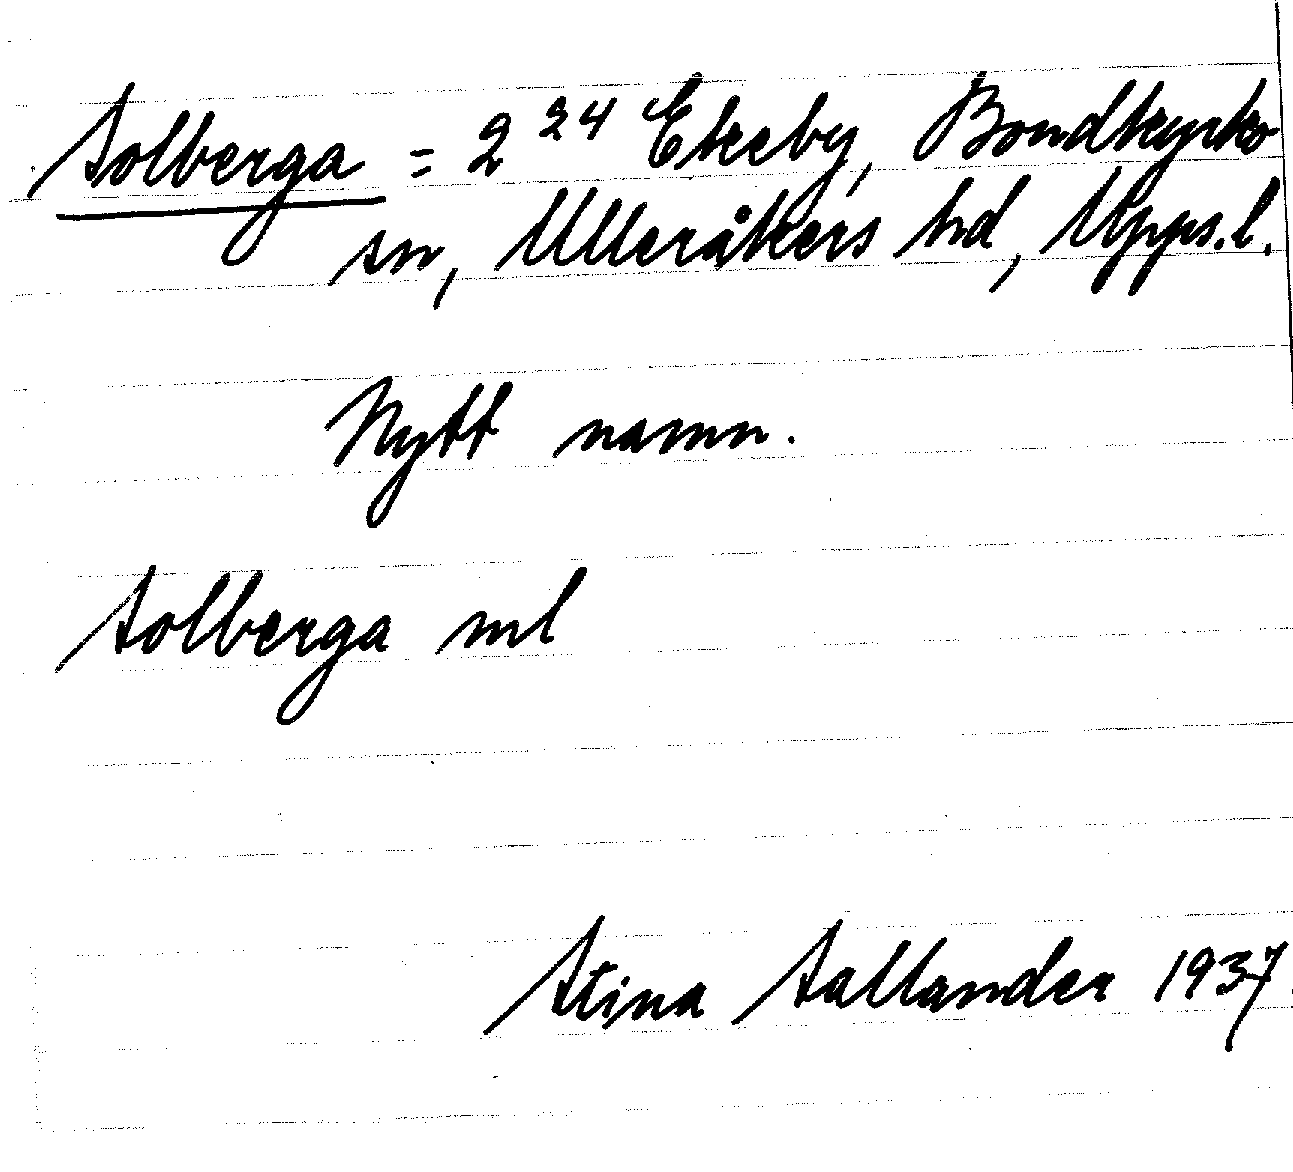 Solberga = 2²⁴ Ekeby, Bondkyrko
sn, Ulleråkers hd, Upps.l.
Nytt namn.
Solberga ml
Stina Sallander 1937